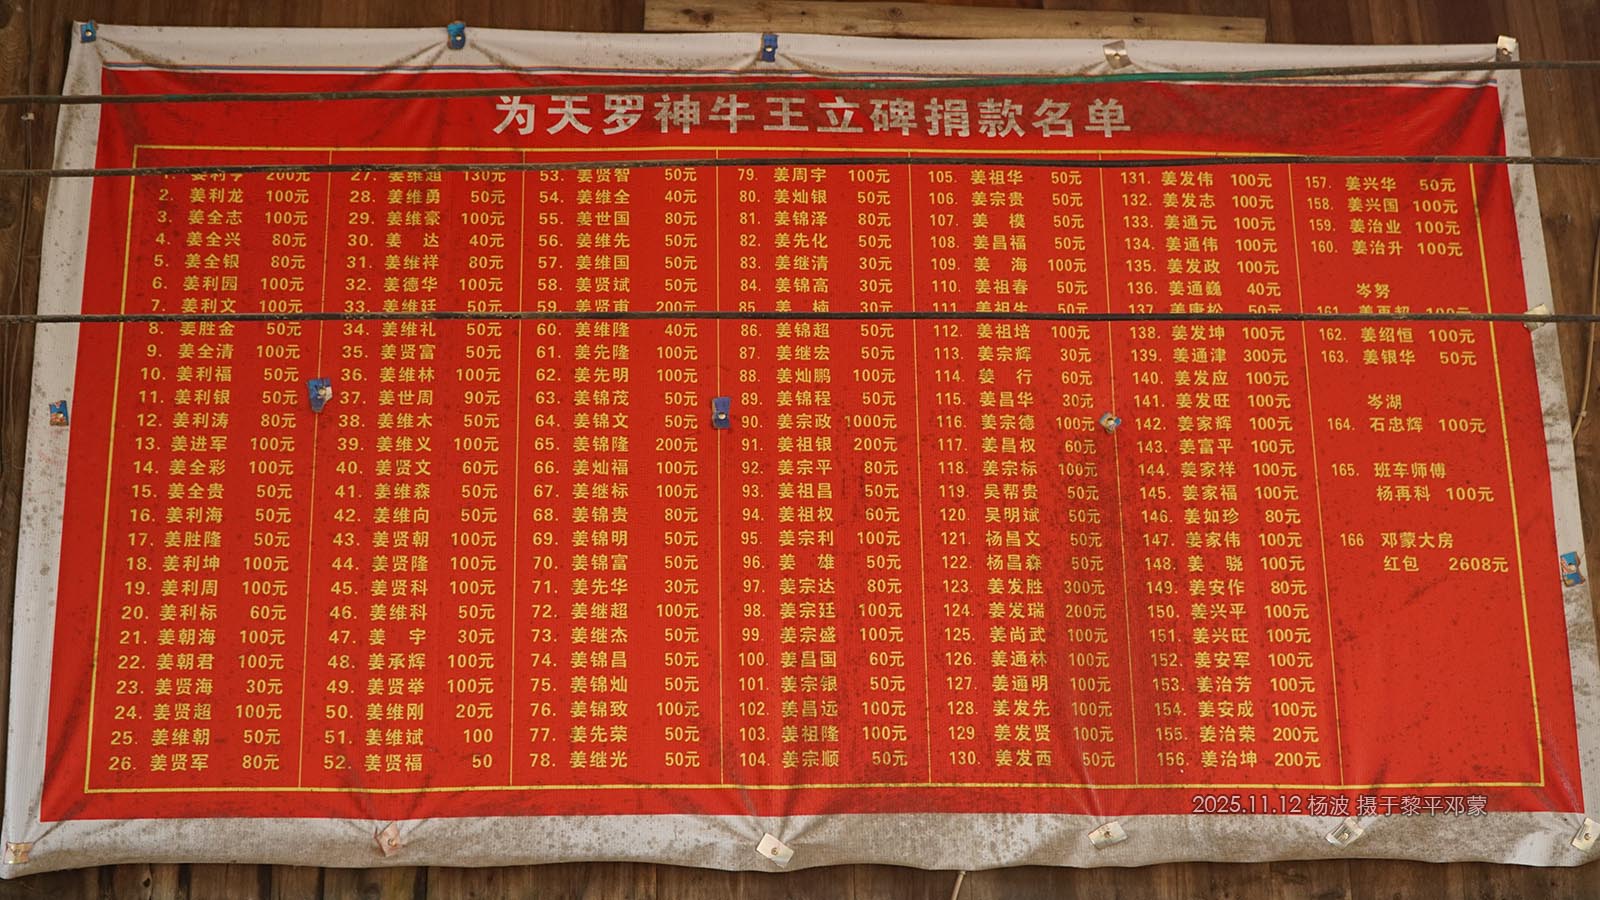 为天罗神牛王立碑捐款名单
1. 姜利亨 200元
2. 姜利龙 100元
3. 姜全志 100元
4. 姜全兴 80元
5. 姜全银 80元
6. 姜利园 100元
7. 姜利文 100元
8. 姜胜金 50元
9. 姜全清 100元
10. 姜利福 50元
11. 姜利银 50元
12. 姜利涛 80元
13. 姜进军 100元
14. 姜全彩 100元
15. 姜全贵 50元
16. 姜利海 50元
17. 姜胜隆 50元
18. 姜利坤 100元
19. 姜利周 100元
20. 姜利标 60元
21. 姜朝海 100元
22. 姜朝君 100元
23. 姜贤海 30元
24. 姜贤超 100元
25. 姜维朝 50元
26. 姜贤军 80元
27. 姜维超 130元
28. 姜维勇 50元
29. 姜维豪 100元
30. 姜 达 40元
31. 姜维祥 80元
32. 姜德华 100元
33. 姜维廷 50元
34. 姜维礼 50元
35. 姜贤富 50元
36. 姜维林 100元
37. 姜世周 90元
38. 姜维木 50元
39. 姜维义 100元
40. 姜贤文 60元
41. 姜维森 50元
42. 姜维向 50元
43. 姜贤朝 100元
44. 姜贤隆 100元
45. 姜贤科 100元
46. 姜维科 50元
47. 姜 宇 30元
48. 姜承辉 100元
49. 姜贤举 100元
50. 姜维刚 20元
51. 姜维斌 100
52. 姜贤福 50
53. 姜贤智 50元
54. 姜维全 40元
55. 姜世国 80元
56. 姜维先 50元
57. 姜维国 50元
58. 姜贤斌 50元
59. 姜贤甫 200元
60. 姜维隆 40元
61. 姜先隆 100元
62. 姜先明 100元
63. 姜锦茂 50元
64. 姜锦文 50元
65. 姜锦隆 200元
66. 姜灿福 100元
67. 姜继标 100元
68. 姜锦贵 80元
69. 姜锦明 50元
70. 姜锦富 100元
71. 姜先华 30元
72. 姜继超 100元
73. 姜继杰 50元
74. 姜锦昌 50元
75. 姜锦灿 50元
76. 姜锦致 100元
77. 姜先荣 50元
78. 姜继光 50元
79. 姜周宇 100元
80. 姜灿银 50元
81. 姜锦泽 80元
82. 姜先化 50元
83. 姜继清 30元
84. 姜锦高 30元
85. 姜 楠 30元
86. 姜锦超 50元
87. 姜继宏 50元
88. 姜灿鹏 100元
89. 姜锦程 50元
90. 姜宗政 1000元
91. 姜祖银 200元
92. 姜宗平 80元
93. 姜祖昌 50元
94. 姜祖权 60元
95. 姜宗利 100元
96. 姜 雄 50元
97. 姜宗达 80元
98. 姜宗廷 100元
99. 姜宗盛 100元
100. 姜昌国 60元
101. 姜宗银 50元
102. 姜昌远 100元
103. 姜祖隆 100元
104. 姜宗顺 50元
105. 姜祖华 50元
106. 姜宗贵 50元
107. 姜 模 50元
108. 姜昌福 50元
109. 姜 海 100元
110. 姜祖春 50元
111. 姜祖生 50元
112. 姜祖培 100元
113. 姜宗辉 30元
114. 姜 行 60元
115. 姜昌华 30元
116. 姜宗德 100元
117. 姜昌权 60元
118. 姜宗标 100元
119. 吴帮贵 50元
120. 吴明斌 50元
121. 杨昌文 50元
122. 杨昌森 50元
123. 姜发胜 300元
124. 姜发瑞 200元
125. 姜尚武 100元
126. 姜通林 100元
127. 姜通明 100元
128. 姜发先 100元
129 姜发贤 100元
130. 姜发西 50元
131. 姜发伟 100元
132. 姜发志 100元
133. 姜通元 100元
134. 姜通伟 100元
135. 姜发政 100元
136. 姜通巍 40元
137. 姜唐松 50元
138. 姜发坤 100元
139. 姜通津 300元
140. 姜发应 100元
141. 姜发旺 100元
142. 姜家辉 100元
143. 姜富平 100元
144. 姜家祥 100元
145. 姜家福 100元
146. 姜如珍 80元
147. 姜家伟 100元
148. 姜 骁 100元
149. 姜安作 80元
150. 姜兴平 100元
151. 姜兴旺 100元
152. 姜安军 100元
153. 姜治芳 100元
154. 姜安成 100元
155. 姜治荣 200元
156. 姜治坤 200元
157. 姜兴华 50元
158. 姜兴国 100元
159. 姜治业 100元
160. 姜治升 100元
岑努
161. 姜再超 100元
162. 姜绍恒 100元
163. 姜银华 50元
岑湖
164. 石忠辉 100元
165. 班车师傅
杨再科 100元
166 邓蒙大房
红包 2608元
2025.11.12 杨波 摄于黎平邓蒙